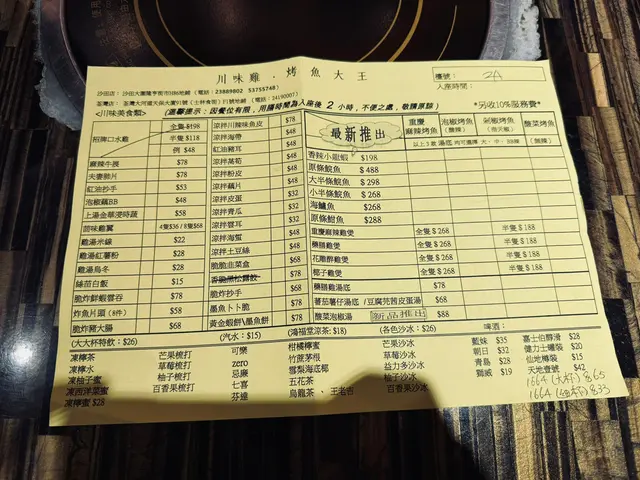 川味雞．烤魚大王
檯號： 2A
入座時間：
沙田店：沙田大圍隆亨街市S186地鋪（電話：23889802 53755748）
荃灣店：荃灣大河道天保大廈91號（士林食街）F1號地鋪（電話：34190007）
<川味美食類>
(溫馨提示：因餐位有限，用膳時間為入座後 2 小時，不便之處，敬請原諒)
*另收10%服務費*
招牌口水雞 全隻$198
半隻$118
例 $48
麻辣牛展 $78
夫妻肺片 $78
紅油抄手 $53
泡椒鵝BB $48
上湯金華浸時蔬 $58
甜味雞翼 4隻$36 / 8隻$68
雞湯米線 $22
雞湯紅薯粉 $28
雞湯烏冬 $28
絲苗白飯 $15
脆炸鮮蝦雲吞 $78
炸魚片頭（8件） $58
脆炸豬大腸 $68
涼拌川辣味魚皮 $78
涼拌海帶 $48
紅油豬耳 $48
涼拌萵筍 $48
涼拌粉皮 $48
涼拌藕片 $32
涼拌皮蛋 $32
涼拌青瓜 $32
涼拌雲耳 $48
涼拌海蜇 $48
涼拌土豆絲
脆脆韭菜盒
脆脆抄手
墨魚卜卜脆 $78
黃金蝦餅\墨魚餅 $78
最新推出
重慶麻辣烤魚
泡椒烤魚（酸辣）
剁椒烤魚
酸菜烤魚
香辣小龍蝦 $198
原條鯇魚 $488
大半條鯇魚 $298
小半條鯇魚 $268
海鱸魚 $268
原條鮰魚 $288
重慶麻辣雞煲 全隻$268 半隻$188
藥膳雞煲 全隻$268 半隻$188
花雕醉雞煲 全隻$268 半隻$188
椰子雞煲 全隻$268 半隻$188
藥膳雞湯底 $78
蕃茄薯仔湯底 /豆腐芫茜皮蛋湯 $68
酸菜泡椒湯 新品推出 $88
(大大杯特飲：$26)
(汽水：$15)
(鴻福堂涼茶:$18)
(各色沙冰：$26)
啤酒：
凍檸茶 芒果梳打 可樂 柑桔檸蜜 芒果沙冰 藍妹 $35 嘉士伯醇滑 $28
凍檸水 草莓梳打 zero 竹蔗茅根 草莓沙冰 朝日 $32 健力士罐裝 $20
凍柚子蜜 柚子梳打 忌廉 雪梨海底椰 益力多沙冰 青島 $28 仙地罐裝 $15
凍西洋菜蜜 百香果梳打 七喜 五花茶 柚子沙冰 獅威 $19 天地壹號 $42
凍檸蜜 $28 芬達 烏龍茶 、 王老吉 百香果沙冰 1664（大杯）$65
1664（細杯）$33